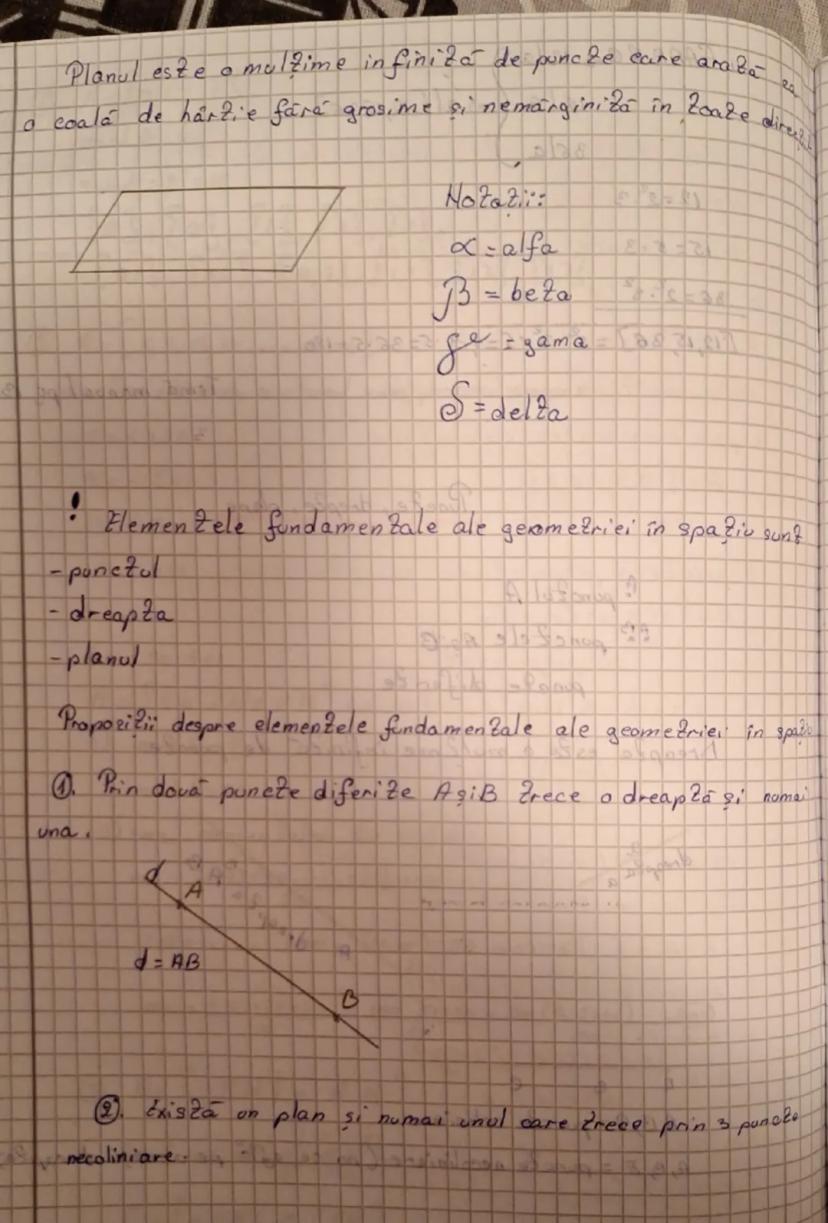 Planul este o mulțime infinită de puncte care arată ca
o coală de hârtie fără grosime și nemărginită în toate direcți
Notații:
α = alfa
β = beta
γ = gama
δ = delta
! Elementele fundamentale ale geometriei în spațiu sunt
- punctul
- dreapta
- planul
Propoziții despre elementele fundamentale ale geometriei în spațiu
①. Prin două puncte diferite A și B trece o dreaptă și numai
una.
d
A
d = AB
B
②. Există un plan și numai unul care trece prin 3 puncte
necoliniare.